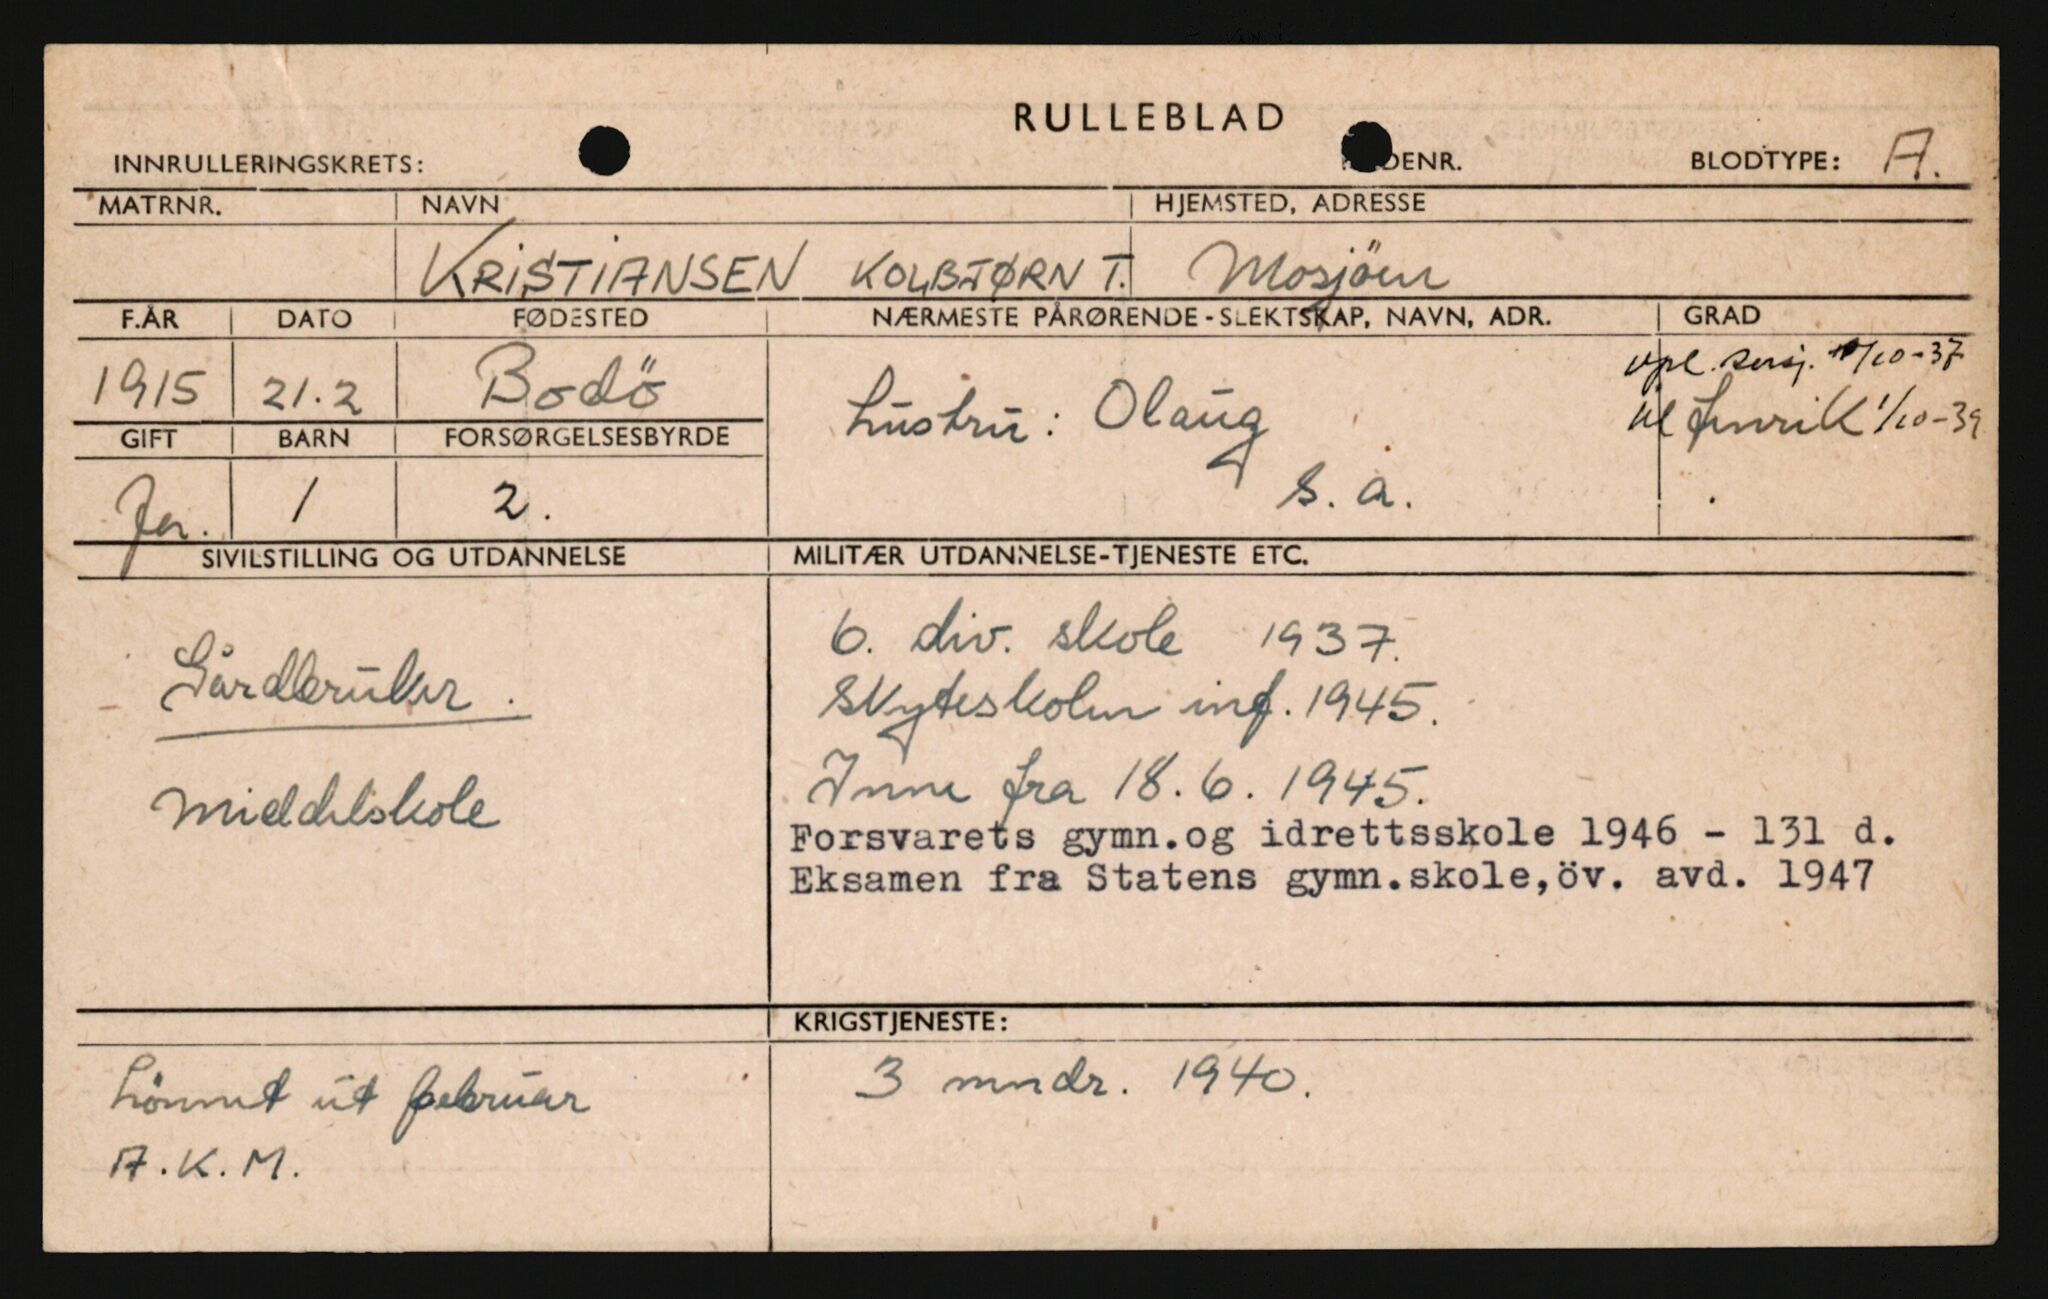 RULLEBLAD
INNRULLERINGSKRETS: DENR. BLODTYPE: A.
MATRNR. NAVN HJEMSTED, ADRESSE
KRISTIANSEN KOLBJØRN T. Mosjöen
F.ÅR DATO FØDESTED NÆRMESTE PÅRØRENDE-SLEKTSKAP, NAVN, ADR. GRAD
1915 21.2 Bodö Hustru: Olaug
s. a.
vpl. sersj. /10-37
Fenrik 1/10-39
GIFT BARN FORSØRGELSESBYRDE
Ja. 1 2.
SIVILSTILLING OG UTDANNELSE MILITÆR UTDANNELSE-TJENESTE ETC.
Gårdbruker.
Middelskole
6. div. skole 1937.
Skyteskolen inf. 1945.
Inne fra 18.6.1945.
Forsvarets gymn.og idrettsskole 1946 - 131 d.
Eksamen fra Statens gymn.skole,öv. avd. 1947
KRIGSTJENESTE:
Lönnet ut februar
A.K.M.
3 mndr. 1940.